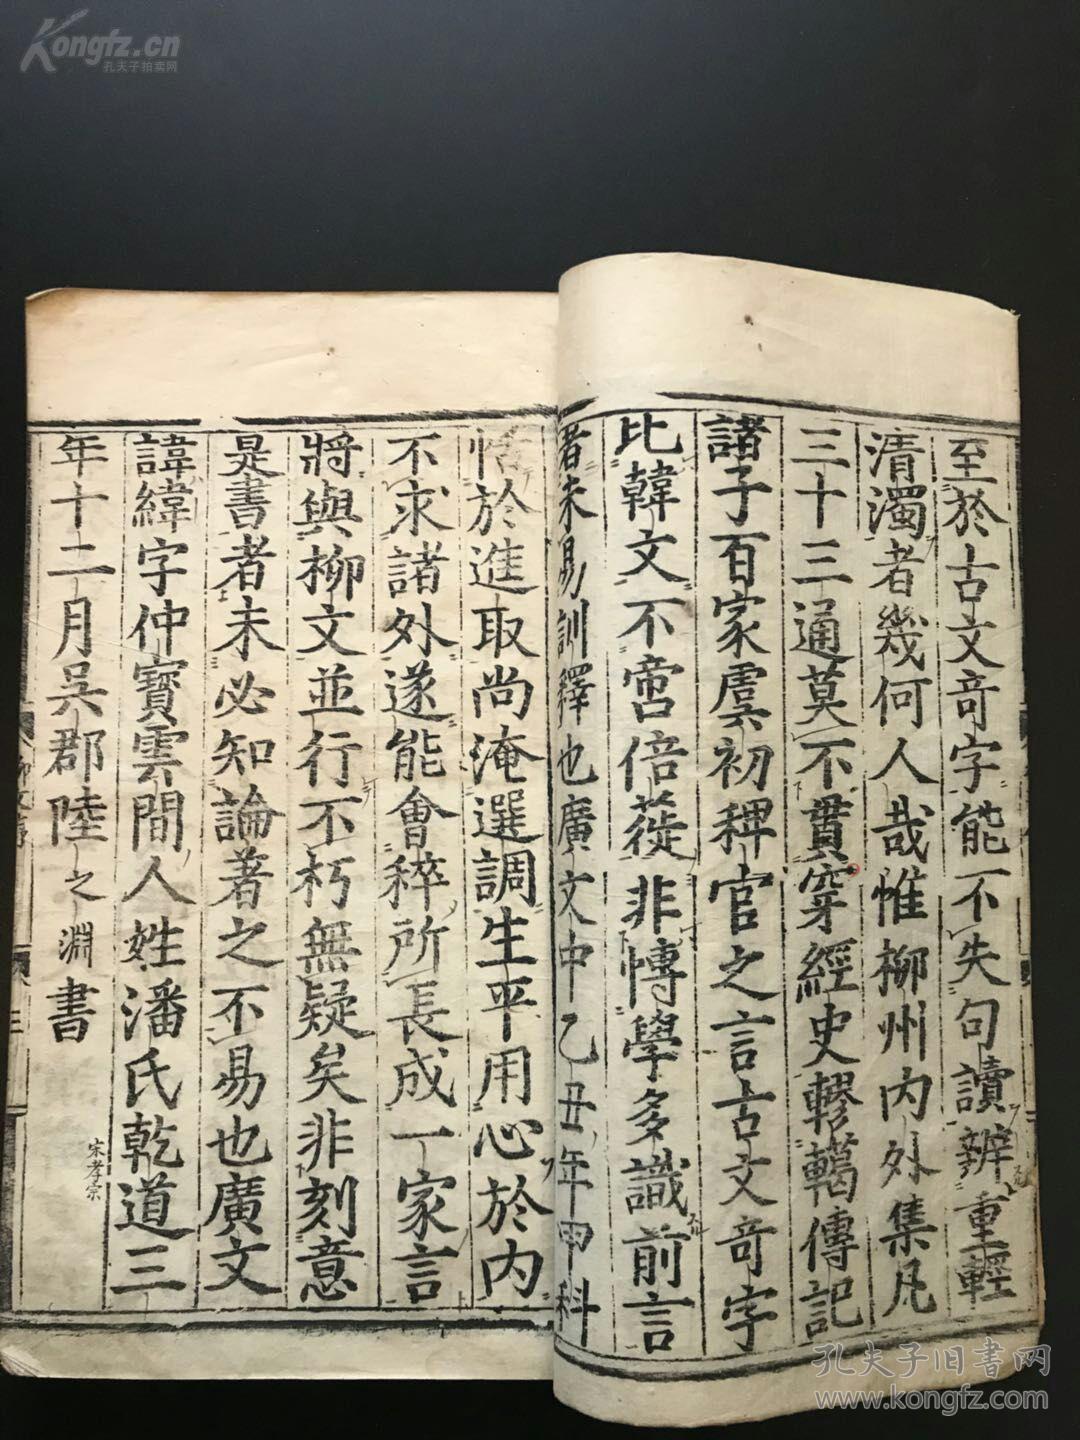 Kongfz.cn
孔夫子拍卖网
至於古文奇字能不失句讀辨重輕
清濁者幾何人哉惟柳州內外集凡
三十三通莫不貫穿經史轇轕傳記
諸子百家虞初稗官之言古文奇字
比韓文不啻倍蓰非博學多識前言
者未易訓釋也廣文中乙丑年甲科
恬於進取尚淹選調生平用心於內
不求諸外遂能會稡所長成一家言
將與柳文並行不朽無疑矣非刻意
是書者未必知論著之不易也廣文
諱緯字仲寶雲間人姓潘氏乾道三
宋孝宗
年十二月吳郡陸之淵書
三
孔夫子旧书网
www.kongfz.com